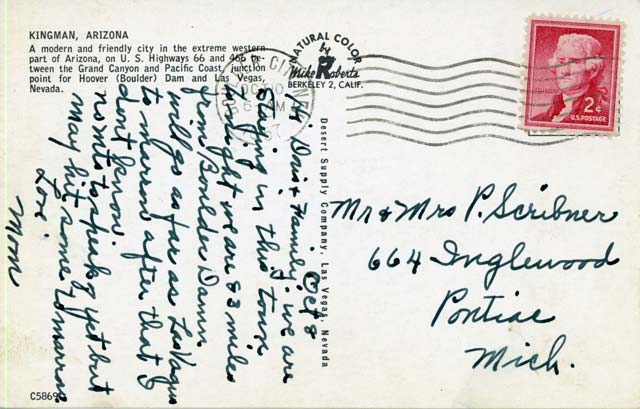 KINGMAN, ARIZONA
A modern and friendly city in the extreme western
part of Arizona, on U. S. Highways 66 and 466 be-
tween the Grand Canyon and Pacific Coast, junction
point for Hoover (Boulder) Dam and Las Vegas,
Nevada.
NATURAL COLOR
by
Mike Roberts
BERKELEY 2, CALIF.
OCT 10
6 AM
2¢
U.S. POSTAGE
Desert Supply Company, Las Vegas, Nevada
Oct 8
Hi Doris & Family: we are
staying in this town
tonight we are 83 miles
from Boulder Dam
will go as far as Las Vegas
to morrow after that I
don't know.
no mts to speak of yet but
may hit some tomorrow
Love.
Mom
Mr & Mrs P. Scribner
664 Inglewood
Pontiac
Mich.
C5869